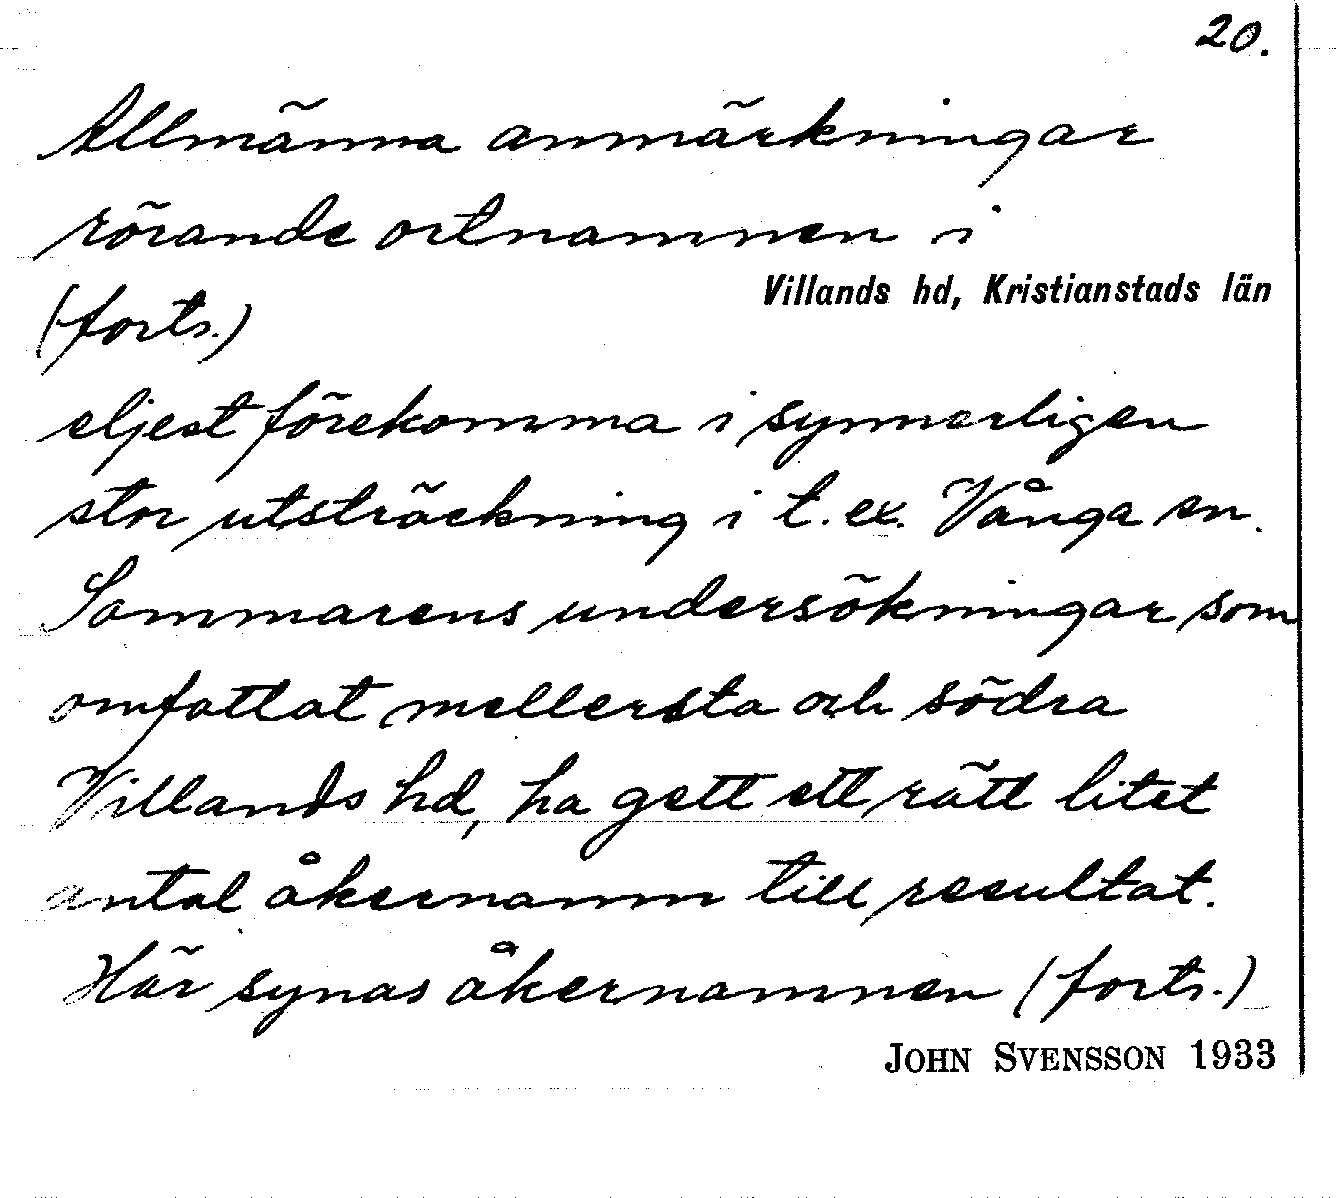 20.
Allmänna anmärkningar
rörande ortnamnen i
Villands hd, Kristianstads län
(forts.)
eljest förekomma i synnerligen
stor utsträckning i t. ex. Vånga sn.
Sommarens undersökningar som
omfattat mellersta och södra
Villands hd, ha gett ett rätt litet
antal åkernamn till resultat.
Här synas åkernamnen (forts.)
JOHN SVENSSON 1933